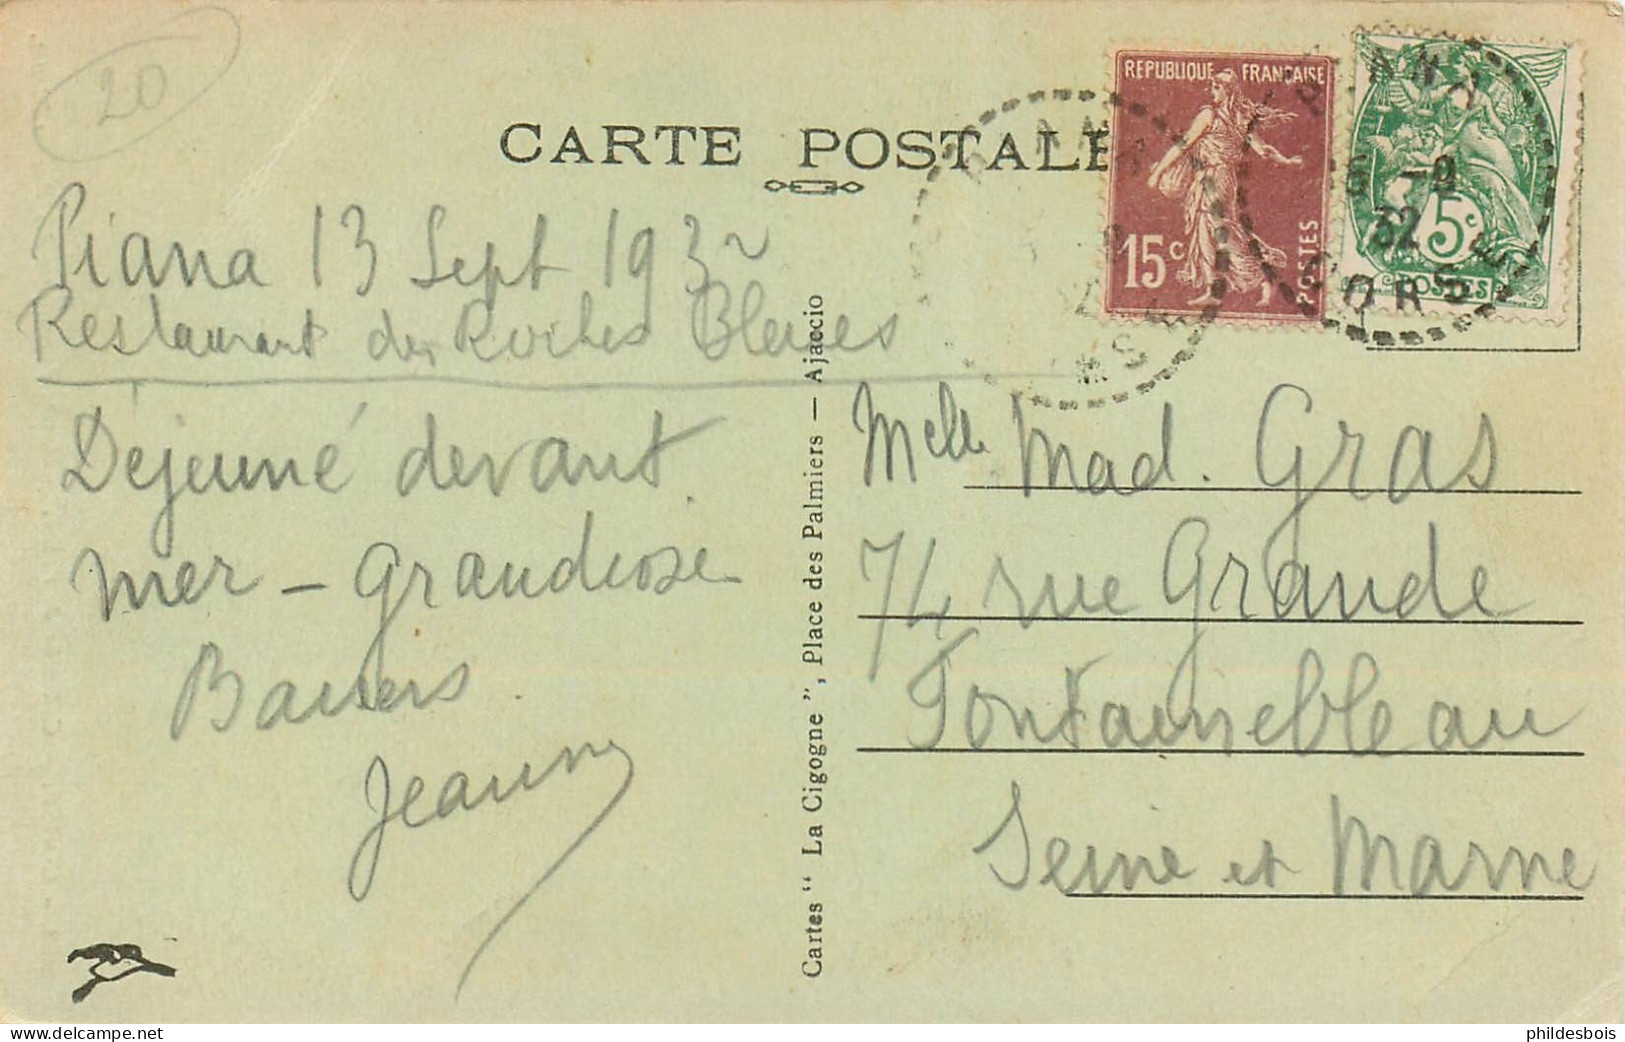 20
CARTE POSTALE
REPUBLIQUE FRANÇAISE
15c
POSTES
5c
POSTES
PIANA
-9
32
CORSE
Piana 13 Sept 1932
Restaurant des Roches Bleues
Déjeuné devant
mer - grandiose
Baisers
Jeanne
Cartes " La Cigogne ", Place des Palmiers — Ajaccio
Melle Mad. Gras
74 rue Grande
Fontainebleau
Seine et Marne
delcampe.net
phildesbois